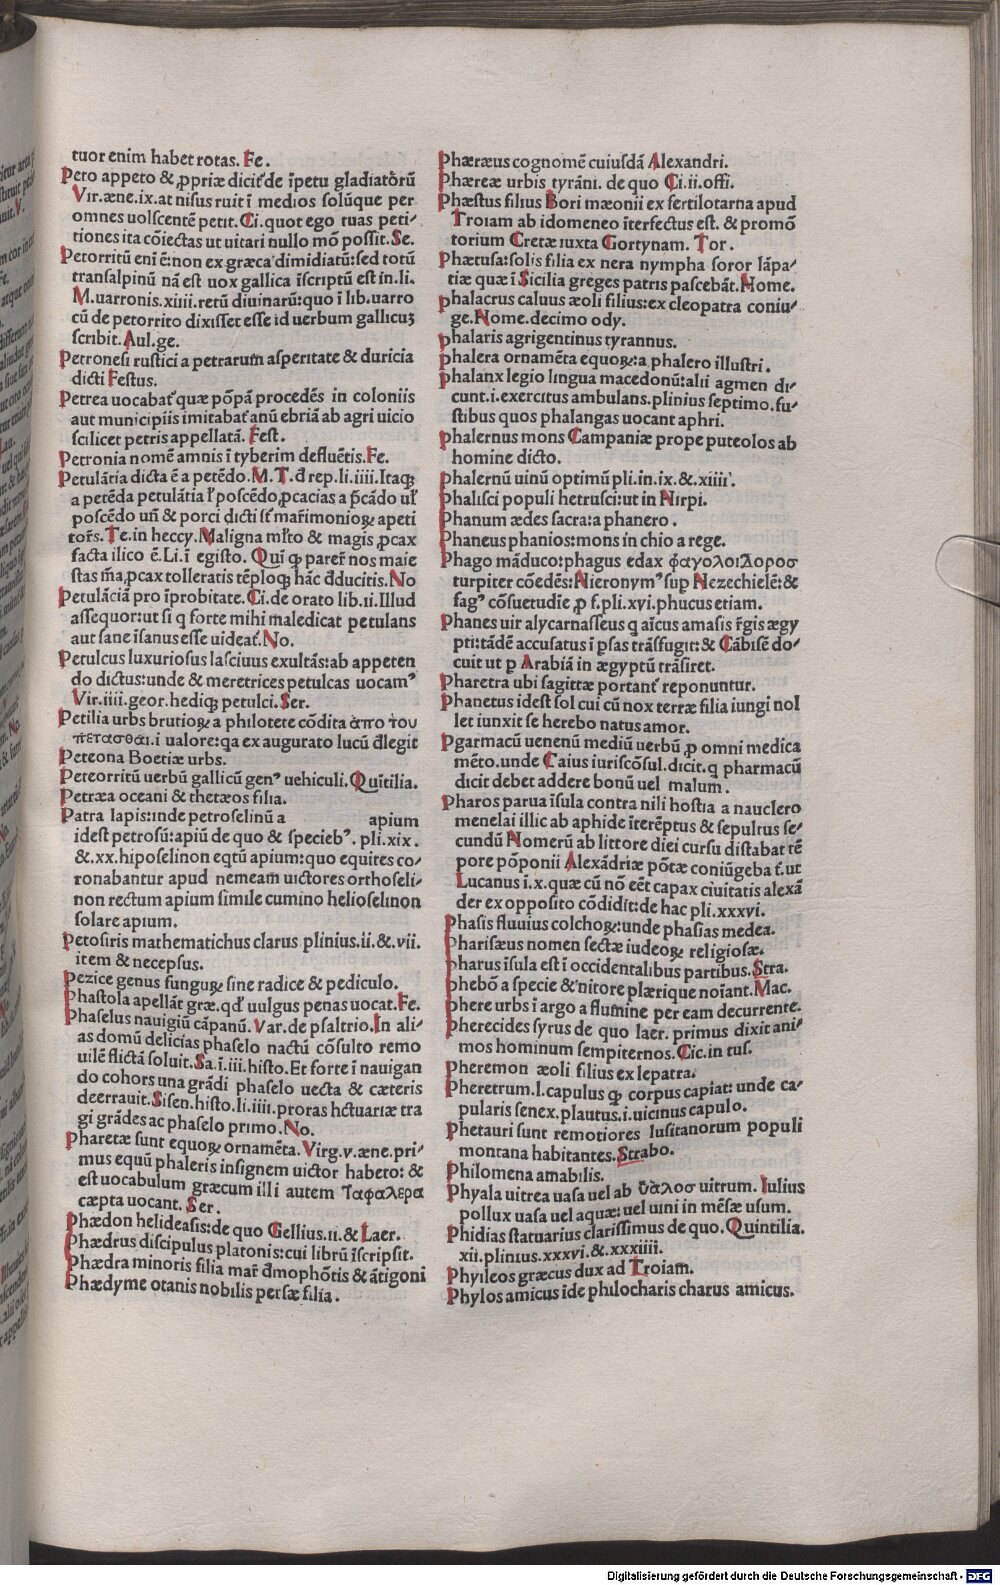 tuor enim habet rotas. Fe.
Pero appeto & ꝓpriæ dicit᷒ de īpetu gladiatōrū
Vir.æne.ix.at nisus ruit ī medios solūque per
omnes uolscentē petit. Ci.quot ego tuas peti⸗
tiones ita cōiectas ut uitari nullo mō possit.Se.
Petorritū eni ē:non ex græca dimidiatū:sed totū
transalpinū nā est uox gallica īscriptū est in.li.
M.uarronis.xiiii.retū diuinarū:quo ī lib.uarro
cū de petorrito dixisset esse id uerbum gallicuꝫ
scribit.Aul.ge.
Petronesi rustici a petrarum asperitate & duricia
dicti Festus.
Petrea uocabat᷒ quæ pōpā procedēs in coloniis
aut municipiis imitabat᷒ anū ebriā ab agri uicio
scilicet petris appellatā. Fest.
Petronia nomē amnis ī tyberim defluētis.Fe.
Petulātia dicta ē a petēdo.M.T.đ rep.li.iiii.Itaqꝫ
a petēda petulātia ł poscēdo ꝓcacias a ꝑcādo uł
poscēdo uñ & porci dicti sī mar̄imonioꝝ apeti
tor̄s.Te.in heccy.Maligna mlto & magis ꝓcax
facta ilico ē.Li.ī egisto. Quī qꝫ parer̄ nos maie
stas m̄a ꝓcax tolleratis tēploqꝫ hāc đducitis.No
Petulāciā pro īprobitate.Ci.de orato lib.ii.Illud
assequor:ut si q forte mihi maledicat petulans
aut sane īsanus esse uideat᷒.No.
Petulcus luxuriosus lasciuus exultās:ab appeten
do dictus:unde & meretrices petulcas uocamꝰ
Vir.iiii.geor.hediqꝫ petulci.Ser.
Petilia urbs brutioꝝ a philotete cōdita ἀπο του
πετασθαι.i ualore:qa ex augurato lucū đlegit
Peteona Boetiæ urbs.
Peteorritū uerbū gallicū genꝰ uehiculi.Quītilia.
Petræa oceani & thetæos filia.
Patra lapis:inde petroselinū a apium
idest petrosū:apiū de quo & speciebꝰ. pli.xix.
&.xx.hiposelinon eqtū apium:quo equites co⸗
ronabantur apud nemeam uictores orthoseli⸗
non rectum apium simile cumino helioselinon
solare apium.
Petosiris mathematichus clarus plinius.ii.&.vii.
item & necepsus.
Pezice genus fungoꝝ sine radice & pediculo.
Phastola apellāt græ.qđ uulgus penas uocat.Fe.
Phaselus nauigiū cāpanū. Var.de psaltrio.In ali⸗
as domū delicias phaselo nactū cōsulto remo
uilē flictā soluit.Sa.ī.iii.histo.Et forte ī nauigan
do cohors una grādi phaselo uecta & cæteris
deerrauit.Sisen.histo.li.iiii.proras hctuariæ tra
gi grādes ac phaselo primo.No.
Pharetæ sunt equoꝝ ornamēta. Virg.v.æne.pri⸗
mus equū phaleris insignem uictor habeto: &
est uocabulum græcum illi autem Ταφαλερα
cæpta uocant. Ser.
Phædon helideasis:de quo Gellius.ii.& Laer.
Phædrus discipulus platonis:cui librū īscripsit.
Phædra minoris filia mar̄ đmophōtis & ātigoni
Phædyme otanis nobilis persæ filia.
Phæræus cognomē cuiusdā Alexandri.
Phæreæ urbis tyrāni. de quo Ci.ii.offi.
Phæstus filius Bori mæonii ex fertilotarna apud
Troiam ab idomeneo īterfectus est. & promō
torium Cretæ iuxta Gortynam. Tor.
Phætusa:solis filia ex nera nympha soror lāpa⸗
tiæ quæ ī Sicilia greges patris pascebāt.Home.
phalacrus caluus æoli filius:ex cleopatra coniu⸗
ge.Nome.decimo ody.
phalaris agrigentinus tyrannus.
phalera ornamēta equoꝝ:a phalero illustri.
phalanx legio lingua macedonū:alii agmen di⸗
cunt.i.exercitus ambulans.plinius septimo.fu⸗
stibus quos phalangas uocant aphri.
phalernus mons Campaniæ prope puteolos ab
homine dicto.
Phalernū uinū optimū pli.in.ix.&.xiiii.
Phalisci populi hetrusci:ut in Nirpi.
Phanum ædes sacra:a phanero.
Phaneus phanios:mons in chio a rege.
Phago māduco:phagus edax φαγολοιΔορος
turpiter cōedēs:Nieronymꝰ sup Nezechielē:&
fagꝰ cōsuetudīe ꝓ f.pli.xvi.phucus etiam.
Phanes uir alycarnasseus q aīcus amasis r̄gis ægy
pti:tādē accusatus ī ꝑsas trāsfugit:& Cābisē do⸗
cuit ut ꝑ Arabiā in ægyptū trāsiret.
Pharetra ubi sagittæ portant᷒ reponuntur.
Phanetus idest sol cui cū nox terræ filia iungi nol
let iunxit se herebo natus amor.
Pgarmacū uenenū mediū uerbū ꝓ omni medica
mēto.unde Caius iuriscōsul.dicit.q pharmacū
dicit debet addere bonū uel malum.
Pharos parua īsula contra nili hostia a nauclero
menelai illic ab aphide īterēptus & sepulrus se⸗
cundū Nomerū ab littore diei cursu distabat tē
pore pōponii Alexādriæ pōtæ coniūgeba t᷒.ut
Lucanus ī.x.quæ cū nō eēt capax ciuitatis alexā
der ex opposito cōdidit:de hac pli.xxxvi.
Phasis fluuius colchoꝝ:unde phasias medea.
Pharisæus nomen sectæ iudeoꝝ religiosæ.
Pharus īsula est ī occidentalibus partibus.Stra.
phebō a specie & nitore plærique noīant.Mac.
phere urbs ī argo a flumine per eam decurrente.
pherecides syrus de quo laer. primus dixit ani⸗
mos hominum sempiternos.Cic.in tus.
Pheremon æoli filius ex lepatra.
Pheretrum.l.capulus qꝫ corpus capiat: unde ca⸗
pularis senex.plautus.i.uicinus capulo.
Phetauri sunt remotiores lusitanorum populi
montana habitantes.Strabo.
Philomena amabilis.
Phyala uitrea uasa uel ab ὕαλος uitrum. Iulius
pollux uasa uel aquæ:uel uini in mēsæ usum.
Phidias statuarius clarissimus de quo.Quintilia.
xii.plinius.xxxvi.&.xxxiiii.
Phyileos græcus dux ad Troiam.
Phylos amicus ide philocharis charus amicus.
Digitalisierung gefördert durch die Deutsche Forschungsgemeinschaft - DFG